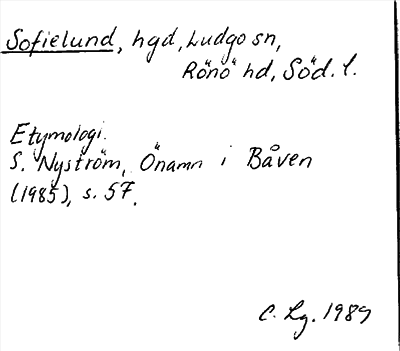 Sofielund, hgd, Ludgo sn,
Rönö hd, Söd. l.
Etymologi.
S. Nyström, Önamn i Båven
(1985), s. 57.
C. Lg. 1989